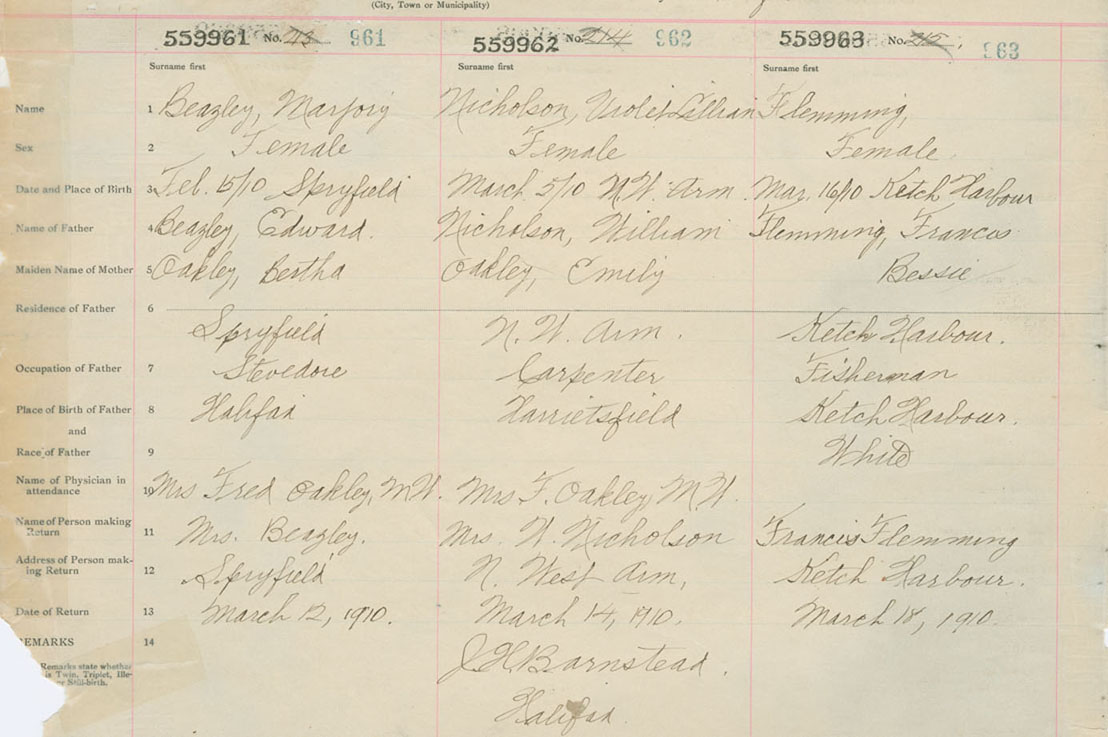 (City, Town or Municipality)
559961 No. 961 559962 No. 214 962 559963 No. 215 963
Surname first Surname first Surname first
Name 1 Beazley, Marjory Nicholson, Violet Lillian Flemming,
Sex 2 Female Female Female
Date and Place of Birth 3 Feb. 15/10 Spryfield March 5/10 N.W. Arm Mar. 16/10 Ketch Harbour
Name of Father 4 Beazley, Edward. Nicholson, William Flemming, Francis
Maiden Name of Mother 5 Oakley, Bertha Oakley, Emily Bessie
Residence of Father 6
Spryfield N.W. Arm. Ketch Harbour.
Occupation of Father 7 Stevedore Carpenter Fisherman
Place of Birth of Father 8 Halifax Harrietsfield Ketch Harbour.
and
Race of Father 9 White
Name of Physician in
attendance 10 Mrs Fred Oakley, M.W. Mrs F. Oakley, M.W.
Name of Person making
Return 11 Mrs. Beazley. Mrs. W. Nicholson Francis Flemming
Address of Person mak-
ing Return 12 Spryfield N. West Arm, Ketch Harbour.
Date of Return 13 March 12, 1910. March 14, 1910. March 18, 1910.
REMARKS 14
J H Barnstead.
Remarks state whether
is Twin, Triplet, Ille-
or Still-birth.
Halifax.